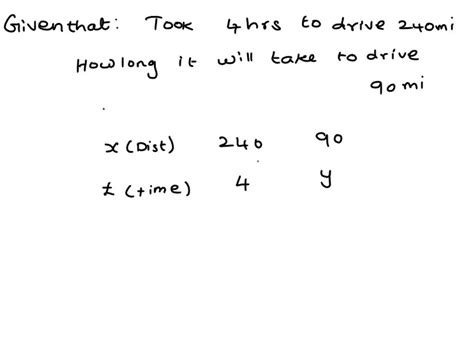 Given that: Took 4hrs to drive 240mi
How long it will take to drive
90mi
x (Dist) 240 90
t (time) 4 y